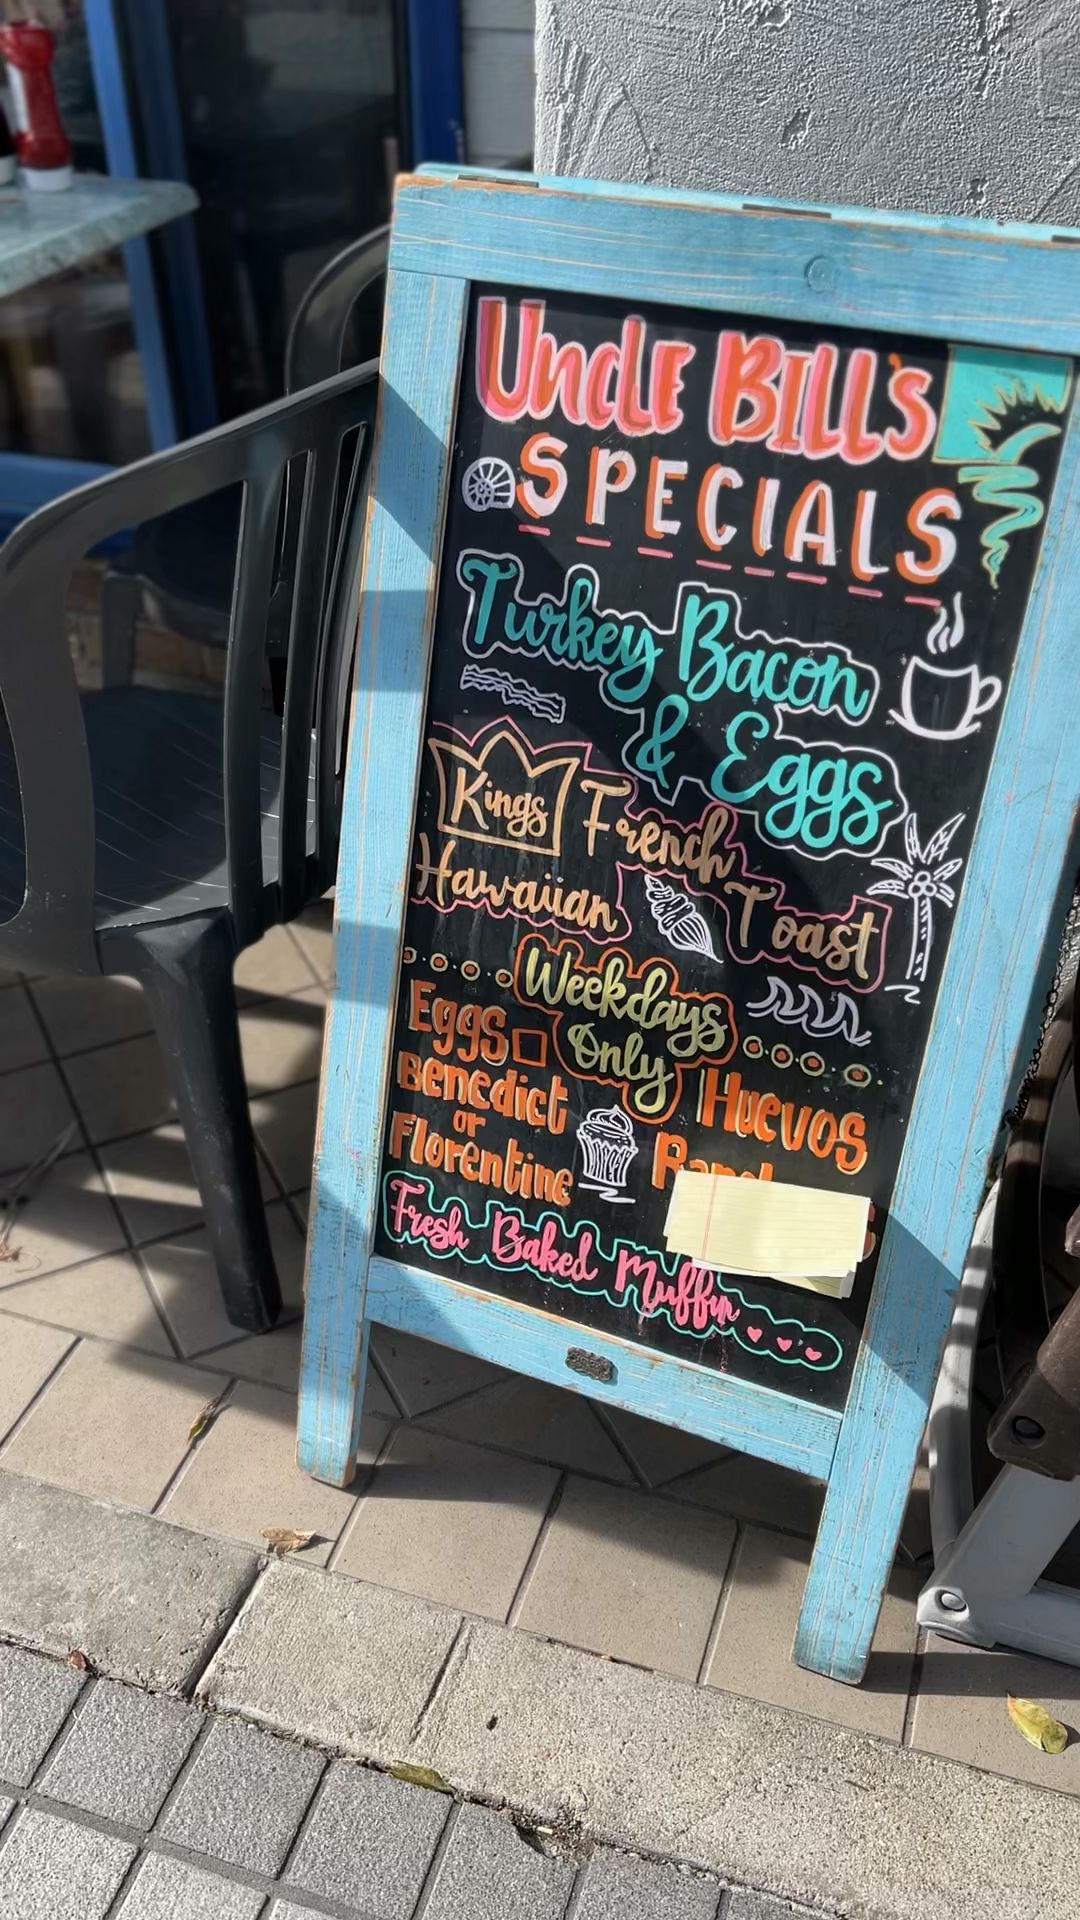 Uncle Bill's
SPECIALS
Turkey Bacon
& Eggs
Kings French
Hawaiian Toast
Weekdays
Only
Eggs
Benedict
or
Florentine
Huevos
Fresh Baked Muffin